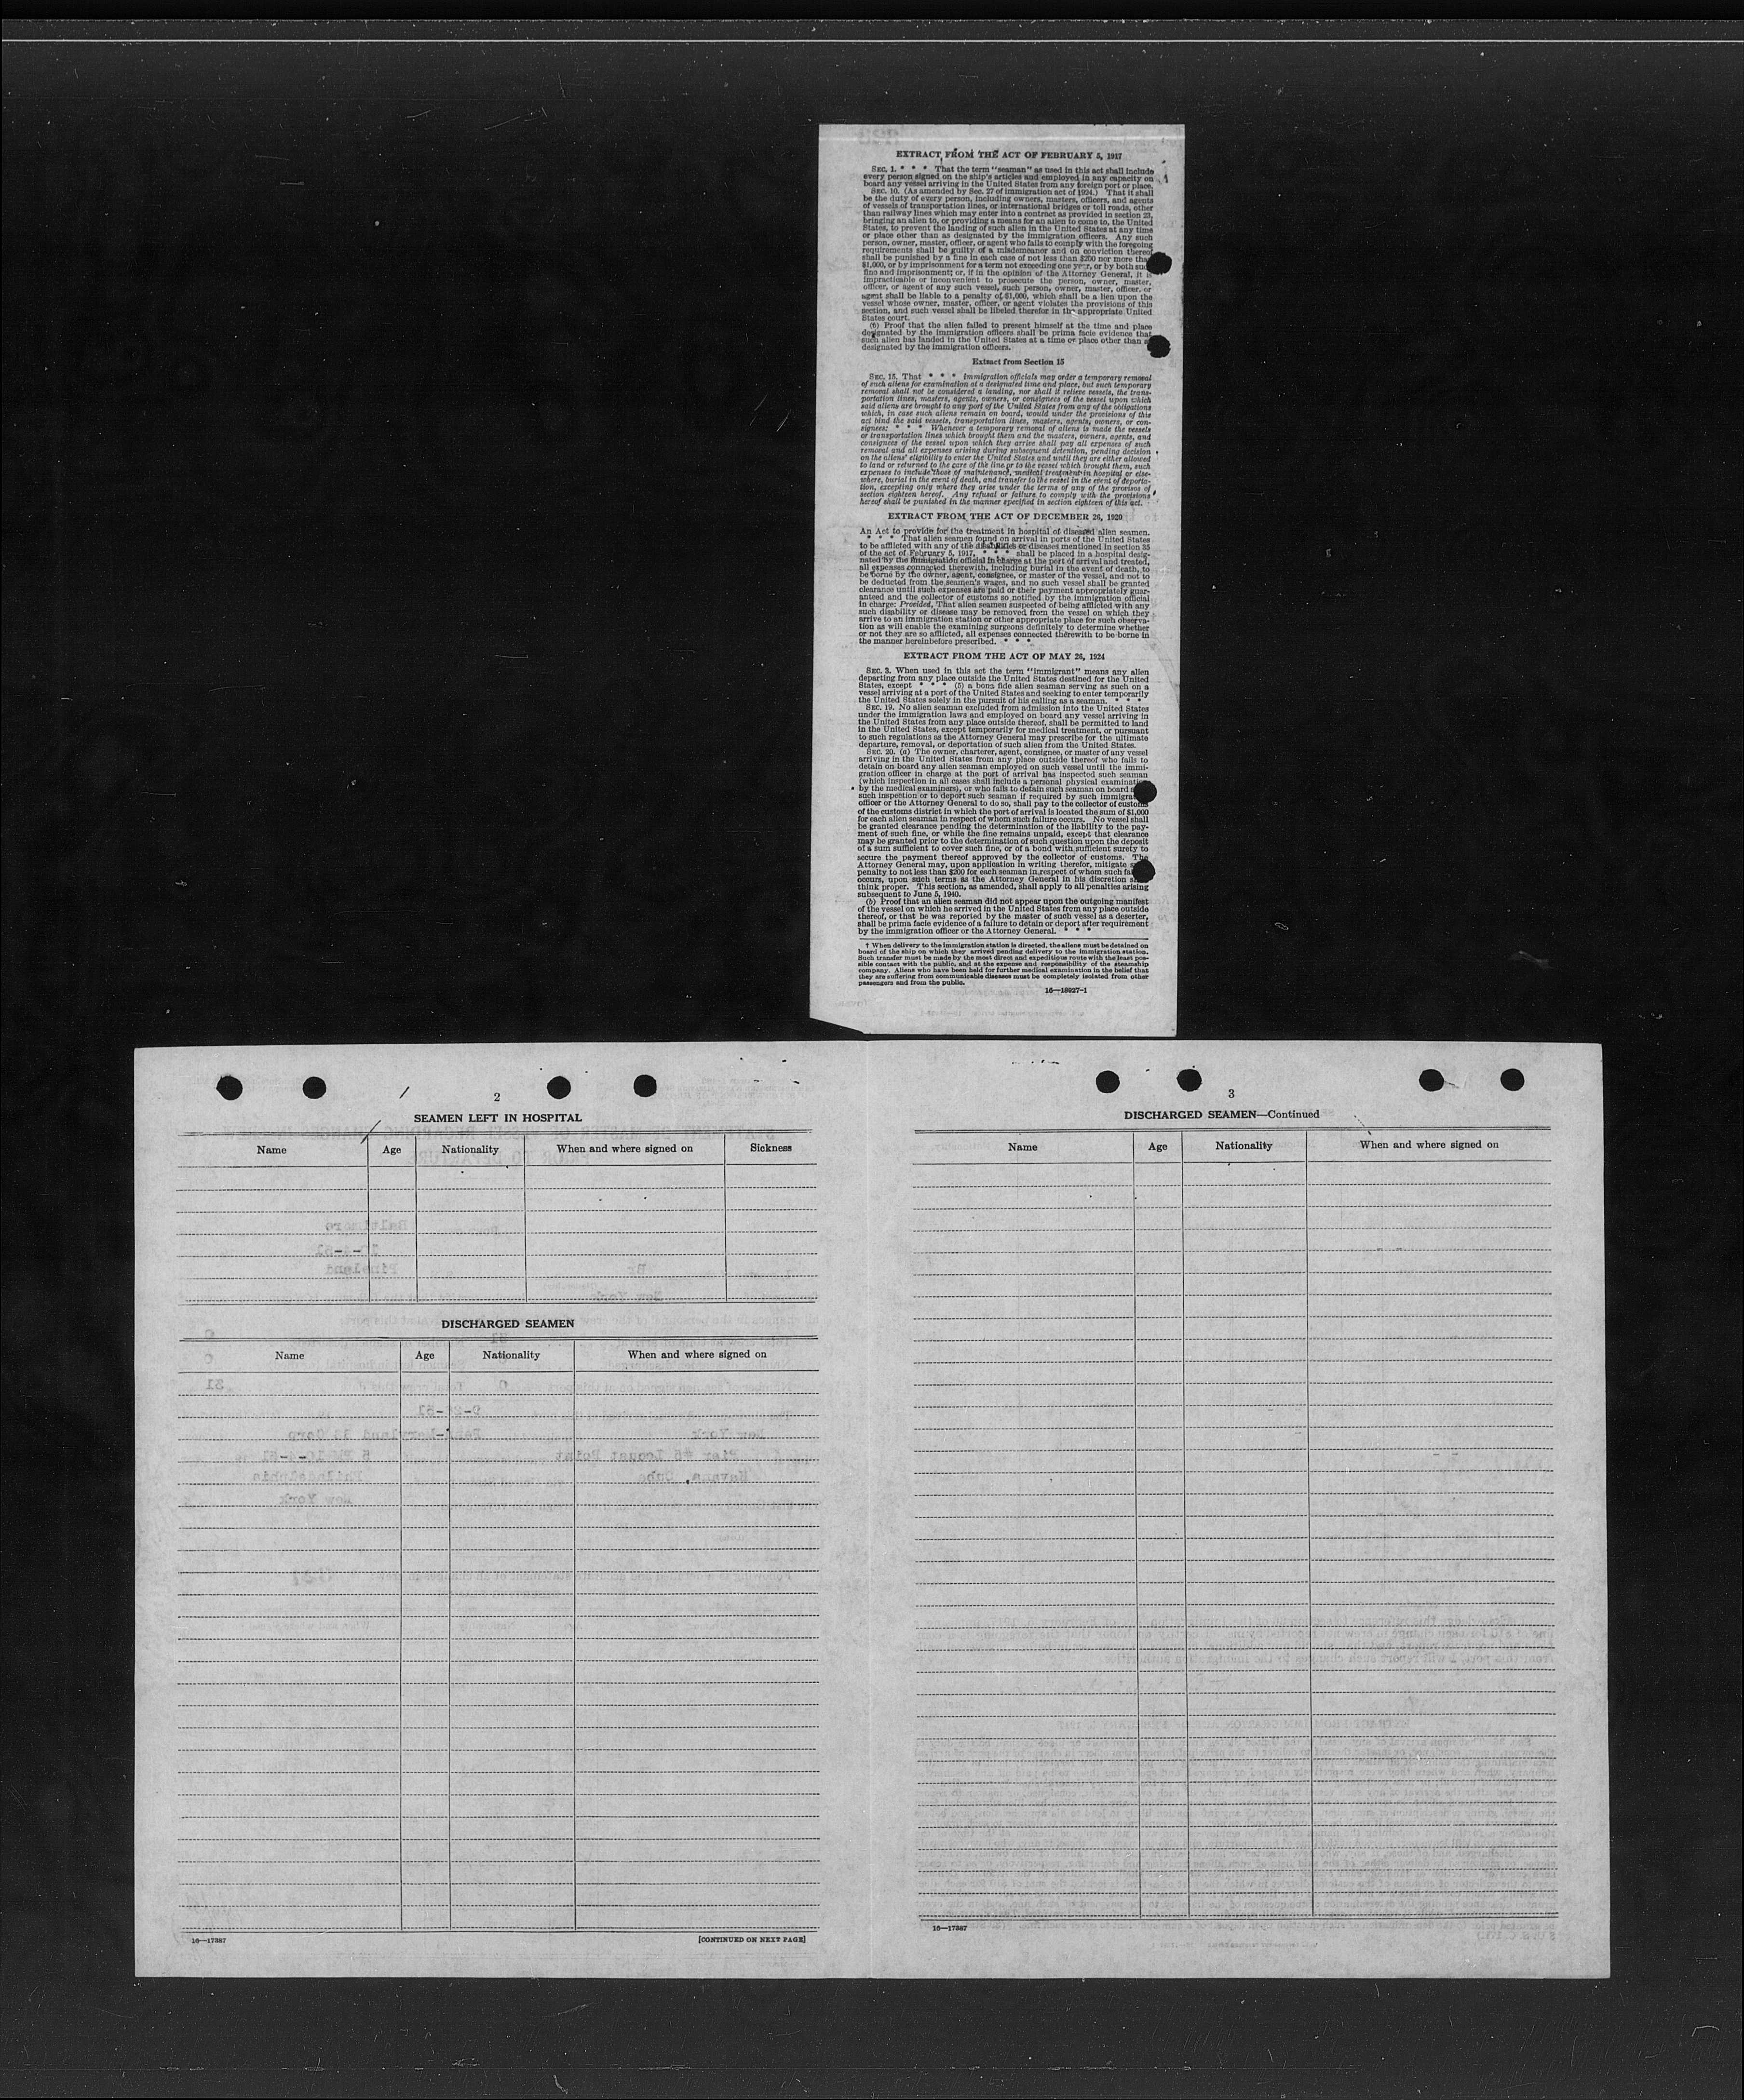 EXTRACT FROM THE ACT OF FEBRUARY 5, 1917
SEC. 1. * * * That the term "seaman" as used in this act shall include
every person signed on the ship's articles and employed in any capacity on
board any vessel arriving in the United States from any foreign port or place.
SEC. 10. (As amended by Sec. 27 of immigration act of 1924.) That it shall
be the duty of every person, including owners, masters, officers, and agents
of vessels of transportation lines, or international bridges or toll roads, other
than railway lines which may enter into a contract as provided in section 23,
bringing an alien to, or providing a means for an alien to come to, the United
States, to prevent the landing of such alien in the United States at any time
or place other than as designated by the immigration officers. Any such
person, owner, master, officer, or agent who fails to comply with the foregoing
requirements shall be guilty of a misdemeanor and on conviction thereof
shall be punished by a fine in each case of not less than $200 nor more than
$1,000, or by imprisonment for a term not exceeding one year, or by both such
fine and imprisonment; or, if in the opinion of the Attorney General, it is
impracticable or inconvenient to prosecute the person, owner, master,
officer, or agent of any such vessel, such person, owner, master, officer, or
agent shall be liable to a penalty of $1,000, which shall be a lien upon the
vessel whose owner, master, officer, or agent violates the provisions of this
section, and such vessel shall be libeled therefor in the appropriate United
States court.
(b) Proof that the alien failed to present himself at the time and place
designated by the immigration officers shall be prima facie evidence that
such alien has landed in the United States at a time or place other than
designated by the immigration officers.
Extract from Section 15
SEC. 15. That * * * immigration officials may order a temporary removal
of such aliens for examination at a designated time and place, but such temporary
removal shall not be considered a landing, nor shall it relieve vessels, the trans-
portation lines, masters, agents, owners, or consignees of the vessel upon which
said aliens are brought to any port of the United States from any of the obligations
which, in case such aliens remain on board, would under the provisions of this
act bind the said vessels, transportation lines, masters, agents, owners, or con-
signees: * * * Whenever a temporary removal of aliens is made the vessels
or transportation lines which brought them and the masters, owners, agents, and
consignees of the vessel upon which they arrive shall pay all expenses of such
removal and all expenses arising during subsequent detention, pending decision
on the aliens' eligibility to enter the United States and until they are either allowed
to land or returned to the care of the line or to the vessel which brought them, such
expenses to include those of maintenance, medical treatment in hospital or else-
where, burial in the event of death, and transfer to the vessel in the event of deporta-
tion, excepting only where they arise under the terms of any of the provisos of
section eighteen hereof. Any refusal or failure to comply with the provisions
hereof shall be punished in the manner specified in section eighteen of this act.
EXTRACT FROM THE ACT OF DECEMBER 26, 1920
An Act to provide for the treatment in hospital of diseased alien seamen.
* * * That alien seamen found on arrival in ports of the United States
to be afflicted with any of the disabilities or diseases mentioned in section 35
of the act of February 5, 1917, * * * shall be placed in a hospital desig-
nated by the immigration official in charge at the port of arrival and treated,
all expenses connected therewith, including burial in the event of death, to
be borne by the owner, agent, consignee, or master of the vessel, and not to
be deducted from the seamen's wages, and no such vessel shall be granted
clearance until such expenses are paid or their payment appropriately guar-
anteed and the collector of customs so notified by the immigration official
in charge: Provided, That alien seamen suspected of being afflicted with any
such disability or disease may be removed from the vessel on which they
arrive to an immigration station or other appropriate place for such observa-
tion as will enable the examining surgeons definitely to determine whether
or not they are so afflicted, all expenses connected therewith to be borne in
the manner hereinbefore prescribed. * * *
EXTRACT FROM THE ACT OF MAY 26, 1924
SEC. 3. When used in this act the term "immigrant" means any alien
departing from any place outside the United States destined for the United
States, except * * * (5) a bona fide alien seaman serving as such on a
vessel arriving at a port of the United States and seeking to enter temporarily
the United States solely in the pursuit of his calling as a seaman. * * *
SEC. 19. No alien seaman excluded from admission into the United States
under the immigration laws and employed on board any vessel arriving in
the United States from any place outside thereof, shall be permitted to land
in the United States, except temporarily for medical treatment, or pursuant
to such regulations as the Attorney General may prescribe for the ultimate
departure, removal, or deportation of such alien from the United States.
SEC. 20. (a) The owner, charterer, agent, consignee, or master of any vessel
arriving in the United States from any place outside thereof who fails to
detain on board any alien seaman employed on such vessel until the immi-
gration officer in charge at the port of arrival has inspected such seaman
(which inspection in all cases shall include a personal physical examination
by the medical examiners), or who fails to detain such seaman on board
such inspection or to deport such seaman if required by such
officer or the Attorney General to do so, shall pay to the collector of customs
of the customs district in which the port of arrival is located the sum of $1,000
for each alien seaman in respect of whom such failure occurs. No vessel shall
be granted clearance pending the determination of the liability to the pay-
ment of such fine, or while the fine remains unpaid, except that clearance
may be granted prior to the determination of such question upon the deposit
of a sum sufficient to cover such fine, or of a bond with sufficient surety to
secure the payment thereof approved by the collector of customs. The
Attorney General may, upon application in writing therefor, mitigate
penalty to not less than $200 for each seaman in respect of whom such
occurs, upon such terms as the Attorney General in his discretion
think proper. This section, as amended, shall apply to all penalties arising
subsequent to June 5, 1940.
(b) Proof that an alien seaman did not appear upon the outgoing manifest
of the vessel on which he arrived in the United States from any place outside
thereof, or that he was reported by the master of such vessel as a deserter,
shall be prima facie evidence of a failure to detain or deport after requirement
by the immigration officer or the Attorney General. * * *
† When delivery to the immigration station is directed, the aliens must be detained on
board of the ship on which they arrived pending delivery to the immigration station.
Such transfer must be made by the most direct and expeditious route with the least pos-
sible contact with the public, and at the expense and responsibility of the steamship
company. Aliens who have been held for further medical examination in the belief that
they are suffering from communicable diseases must be completely isolated from other
passengers and from the public.
16—18927-1
2
SEAMEN LEFT IN HOSPITAL
Name Age Nationality When and where signed on Sickness
DISCHARGED SEAMEN
Name Age Nationality When and where signed on
16—17387 [CONTINUED ON NEXT PAGE]
3
DISCHARGED SEAMEN—Continued
Name Age Nationality When and where signed on
16—17387